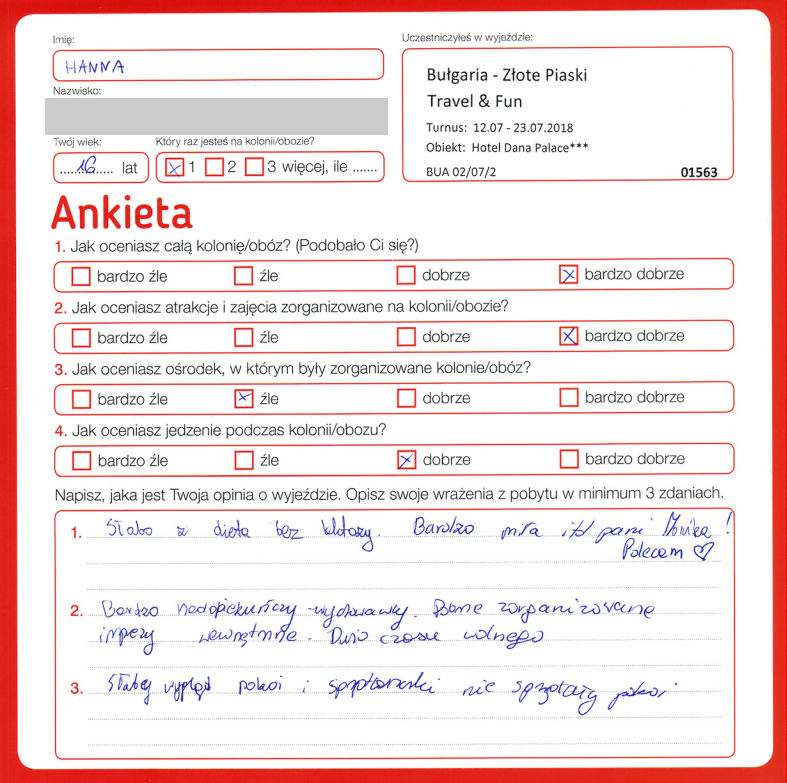 Imię:
HANNA
Nazwisko:
Twój wiek:
16 lat
Który raz jesteś na kolonii/obozie?
1 2 3 więcej, ile .......
Uczestniczyłeś w wyjeździe:
Bułgaria - Złote Piaski
Travel & Fun
Turnus: 12.07 - 23.07.2018
Obiekt: Hotel Dana Palace***
BUA 02/07/2 01563
Ankieta
1. Jak oceniasz całą kolonię/obóz? (Podobało Ci się?)
bardzo źle źle dobrze bardzo dobrze
2. Jak oceniasz atrakcje i zajęcia zorganizowane na kolonii/obozie?
bardzo źle źle dobrze bardzo dobrze
3. Jak oceniasz ośrodek, w którym były zorganizowane kolonie/obóz?
bardzo źle źle dobrze bardzo dobrze
4. Jak oceniasz jedzenie podczas kolonii/obozu?
bardzo źle źle dobrze bardzo dobrze
Napisz, jaka jest Twoja opinia o wyjeździe. Opisz swoje wrażenia z pobytu w minimum 3 zdaniach.
1. Słabo z dietą bez laktozy. Bardzo miła pani Monika!
Polecam ♡
2. Bardzo wychowawcy. zorganizowane
imprezy wewnętrzne. Dużo czasu wolnego
3. Słaby wygląd pokoi i nie sprzątały pokoi